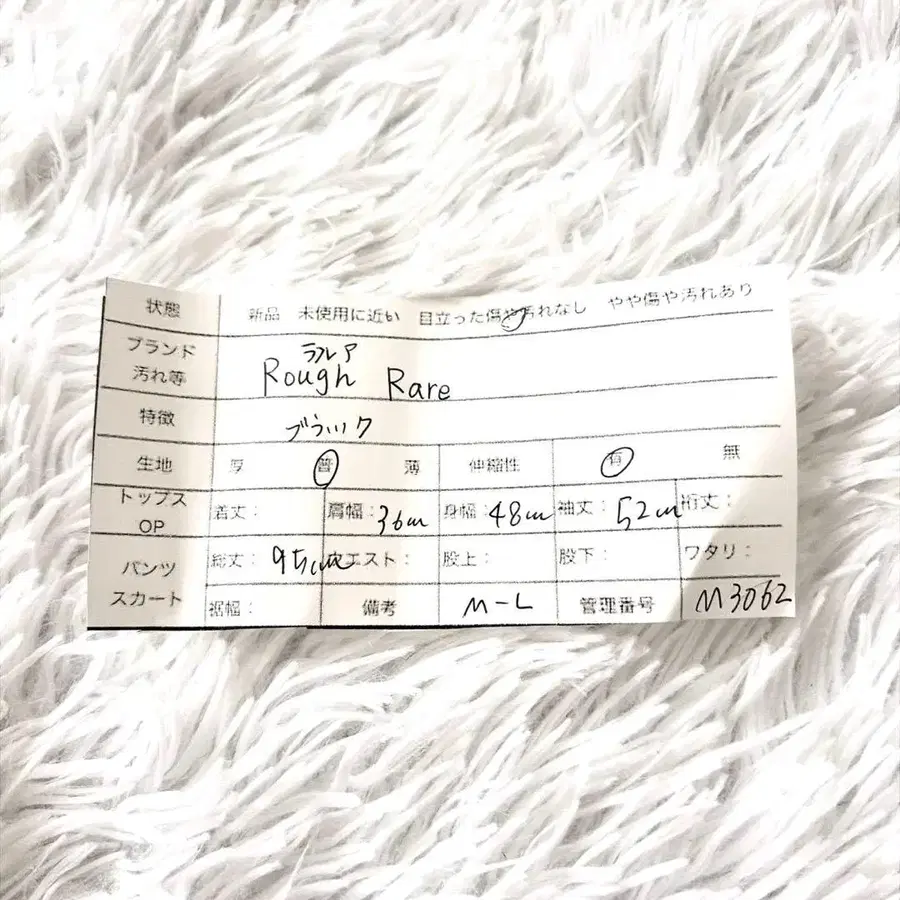 状態 新品 未使用に近い 目立った傷や汚れなし やや傷や汚れあり
ブランド ラフレア
汚れ等 Rough Rare
特徴 ブラック
生地 厚 普 薄 伸縮性 有 無
トップス OP 着丈: 肩幅: 36cm 身幅: 48cm 袖丈: 52cm 裄丈:
パンツ 総丈: 95cm ウエスト: 股上: 股下: ワタリ:
スカート 裾幅: 備考 M-L 管理番号 M3062